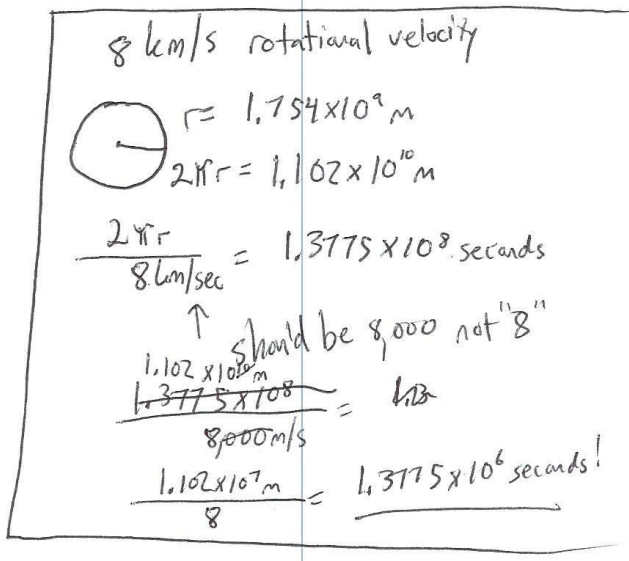 8 km/s rotational velocity
r = 1.754×10⁹ m
2πr = 1.102×10¹⁰ m
2πr / 8 km/sec = 1.3775 × 10⁸ seconds
↑ should be 8,000 not "8"
1.102 ×10¹⁰ m
1.3775×10⁸ / 8,000 m/s =
1.102×10⁷ m / 8 = 1.3775×10⁶ seconds!